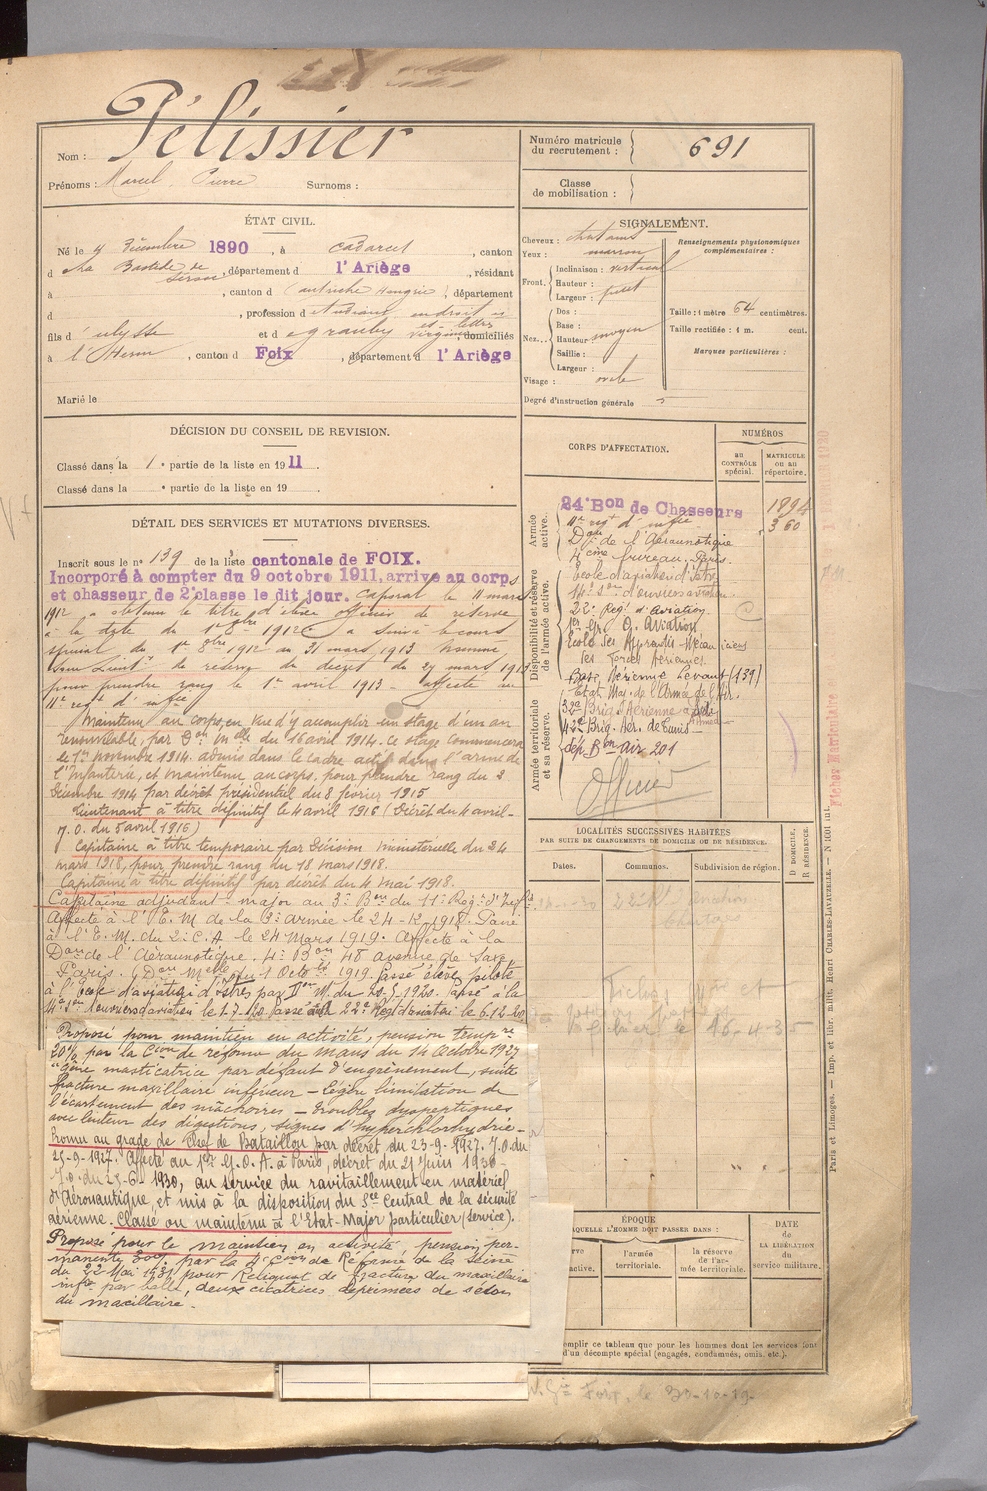 Pélissier
Nom :
Prénoms : Marcel Pierre Surnoms :
Numéro matricule
du recrutement : 691
Classe
de mobilisation :
ÉTAT CIVIL.
Né le 4 Décembre 1890, à Cadarcet, canton
d La Bastide de Sérou, département d l'Ariège, résidant
à , canton d (Autriche Hongrie), département
d , profession d étudiant en droit et
fils d'Ulysse et d' Virginie, domiciliés
à l'Herm, canton d Foix, département d l'Ariège
Marié le
SIGNALEMENT.
Cheveux : chatains
Yeux : marron
Front. Inclinaison : vertical
Hauteur :
Largeur : petit
Nez. Dos :
Base :
Hauteur moyen
Saillie :
Largeur :
Visage : ovale
Degré d'instruction générale 5
Renseignements physionomiques
complémentaires :
Taille : 1 mètre 64 centimètres.
Taille rectifiée : 1 m. cent.
Marques particulières :
DÉCISION DU CONSEIL DE REVISION.
Classé dans la 1e partie de la liste en 1911.
Classé dans la e partie de la liste en 19 .
DÉTAIL DES SERVICES ET MUTATIONS DIVERSES.
Inscrit sous le n° 139 de la liste cantonale de FOIX.
Incorporé à compter du 9 octobre 1911, arrive au corps
et chasseur de 2e classe le dit jour. Caporal le 11 mars
1912 a obtenu le titre d'élève officier de réserve
à la date du 1er 8bre 1912 a suivi le cours
spécial du 1er 8bre 1912 au 31 mars 1913 nommé
Sous Lieutt de réserve du décret du 29 mars 1913
pour prendre rang le 1er avril 1913 - affecté au
11e regt d'infie
Maintenu au corps en vue d'y accomplir un stage d'un an
renouvelable, par Don Mlle du 16 avril 1914. Ce stage commencera
le 1er novembre 1914. admis dans le cadre actif dans l'arme de
l'Infanterie, et maintenu au corps, pour prendre rang du 2
Décembre 1914 par décret présidentiel du 8 février 1915
Lieutenant à titre définitif le 4 avril 1916 (Décret du 4 avril -
J.O. du 5 avril 1916)
Capitaine à titre temporaire par Décision ministérielle du 24
mars 1918, pour prendre rang du 18 mars 1918.
Capitaine à titre définitif par décret du 4 mai 1918.
Capitaine adjudant major au 3e Bon du 11e Rég. d'Infie
Affecté à l'E.M. de la 3e armée le 24-12-1918. Passé
à l'E.M. du 2e C.A. le 24 Mars 1919. Affecté à la
Don de l'aéraunotique. 4e Bau 48 avenue de Saxe,
Paris. (Don Mlle du 1 Octobre 1919. Passé élève pilote
à l'Ecole d'aviation d'Istres par Don M. du 20.5.1920. Passé à la
14e Son d'ouvriers d'aviation le 1.7.20. Passé au 22e Regt d'aviation le 6.12.20
Proposé pour maintien en activité, pension tempre
20% par la Con de réforme du mans du 14 Octobre 1927
"Gêne masticatrice par défaut d'engrènement, suite
fracture maxillaire inférieur - Légère limitation de
l'écartement des mâchoires - troubles dyspeptiques
avec lenteur des digestions, signes d'hyperchlorhydrie -
Promu au grade de Chef de Bataillon par décret du 23-9-1927. J.O. du
25-9-1927. Affecté au 1er G.O.A. à Paris, décret du 21 Juin 1930 -
J.O. du 25-6-1930, au service du ravitaillement en matériel
d'Aéronautique, et mis à la disposition du Sce Central de la sécurité
aérienne. Classé ou maintenu à l'Etat-Major particulier (service).
Proposé pour le maintien en activité pension per-
manente 30% par la 1e Con de Réforme de la Seine
du 22 Mai 1931 pour Reliquat de fracture du maxillaire
infr par balle, deux cicatrices déprimées de séton
du maxillaire.
CORPS D'AFFECTATION.
NUMÉROS
AU
CONTRÔLE
SPÉCIAL.
MATRICULE
OU AU
RÉPERTOIRE.
Armée
active.
Disponibilité et réserve
de l'armée active.
Armée territoriale
et sa réserve.
24e Bon de Chasseurs 1894
11e regt d'infie 360
Don de l'Aéraunotique
4eme bureau. Paris.
Ecole d'aviation d'Istres
14e Son d'ouvriers aviation.
22e Regt d'Aviation.
1er Gr. O. Aviation
Ecole des Apprentis Mécaniciens
des Forces Aériennes.
Base Aérienne Levant (139)
Etat Maj. de l'Armée de l'Air.
3e Brig. Aérienne
4e Brig. Aér. de Tunis
dép. Bon Air 201
Officier
LOCALITÉS SUCCESSIVES HABITÉES
PAR SUITE DE CHANGEMENTS DE DOMICILE OU DE RÉSIDENCE.
Dates.
Communes.
Subdivision de région.
D DOMICILE,
R RÉSIDENCE.
le 16-4-35
ÉPOQUE
À LAQUELLE L'HOMME DOIT PASSER DANS :
l'armée
territoriale.
la réserve
de l'ar-
mée territoriale.
DATE
de
LA LIBÉRATION
du
service militaire.
emplir ce tableau que pour les hommes dont les services font
d'un décompte spécial (engagés, condamnés, omis, etc.).
Foix, le 30-10-19
Paris et Limoges. — Imp. et libr. milit. Henri CHARLES-LAVAUZELLE.